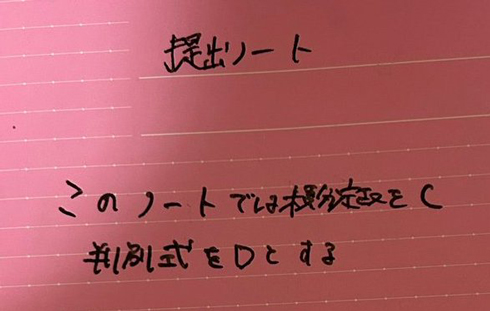 提出ノート
このノートでは積分定数をC
判別式をDとする